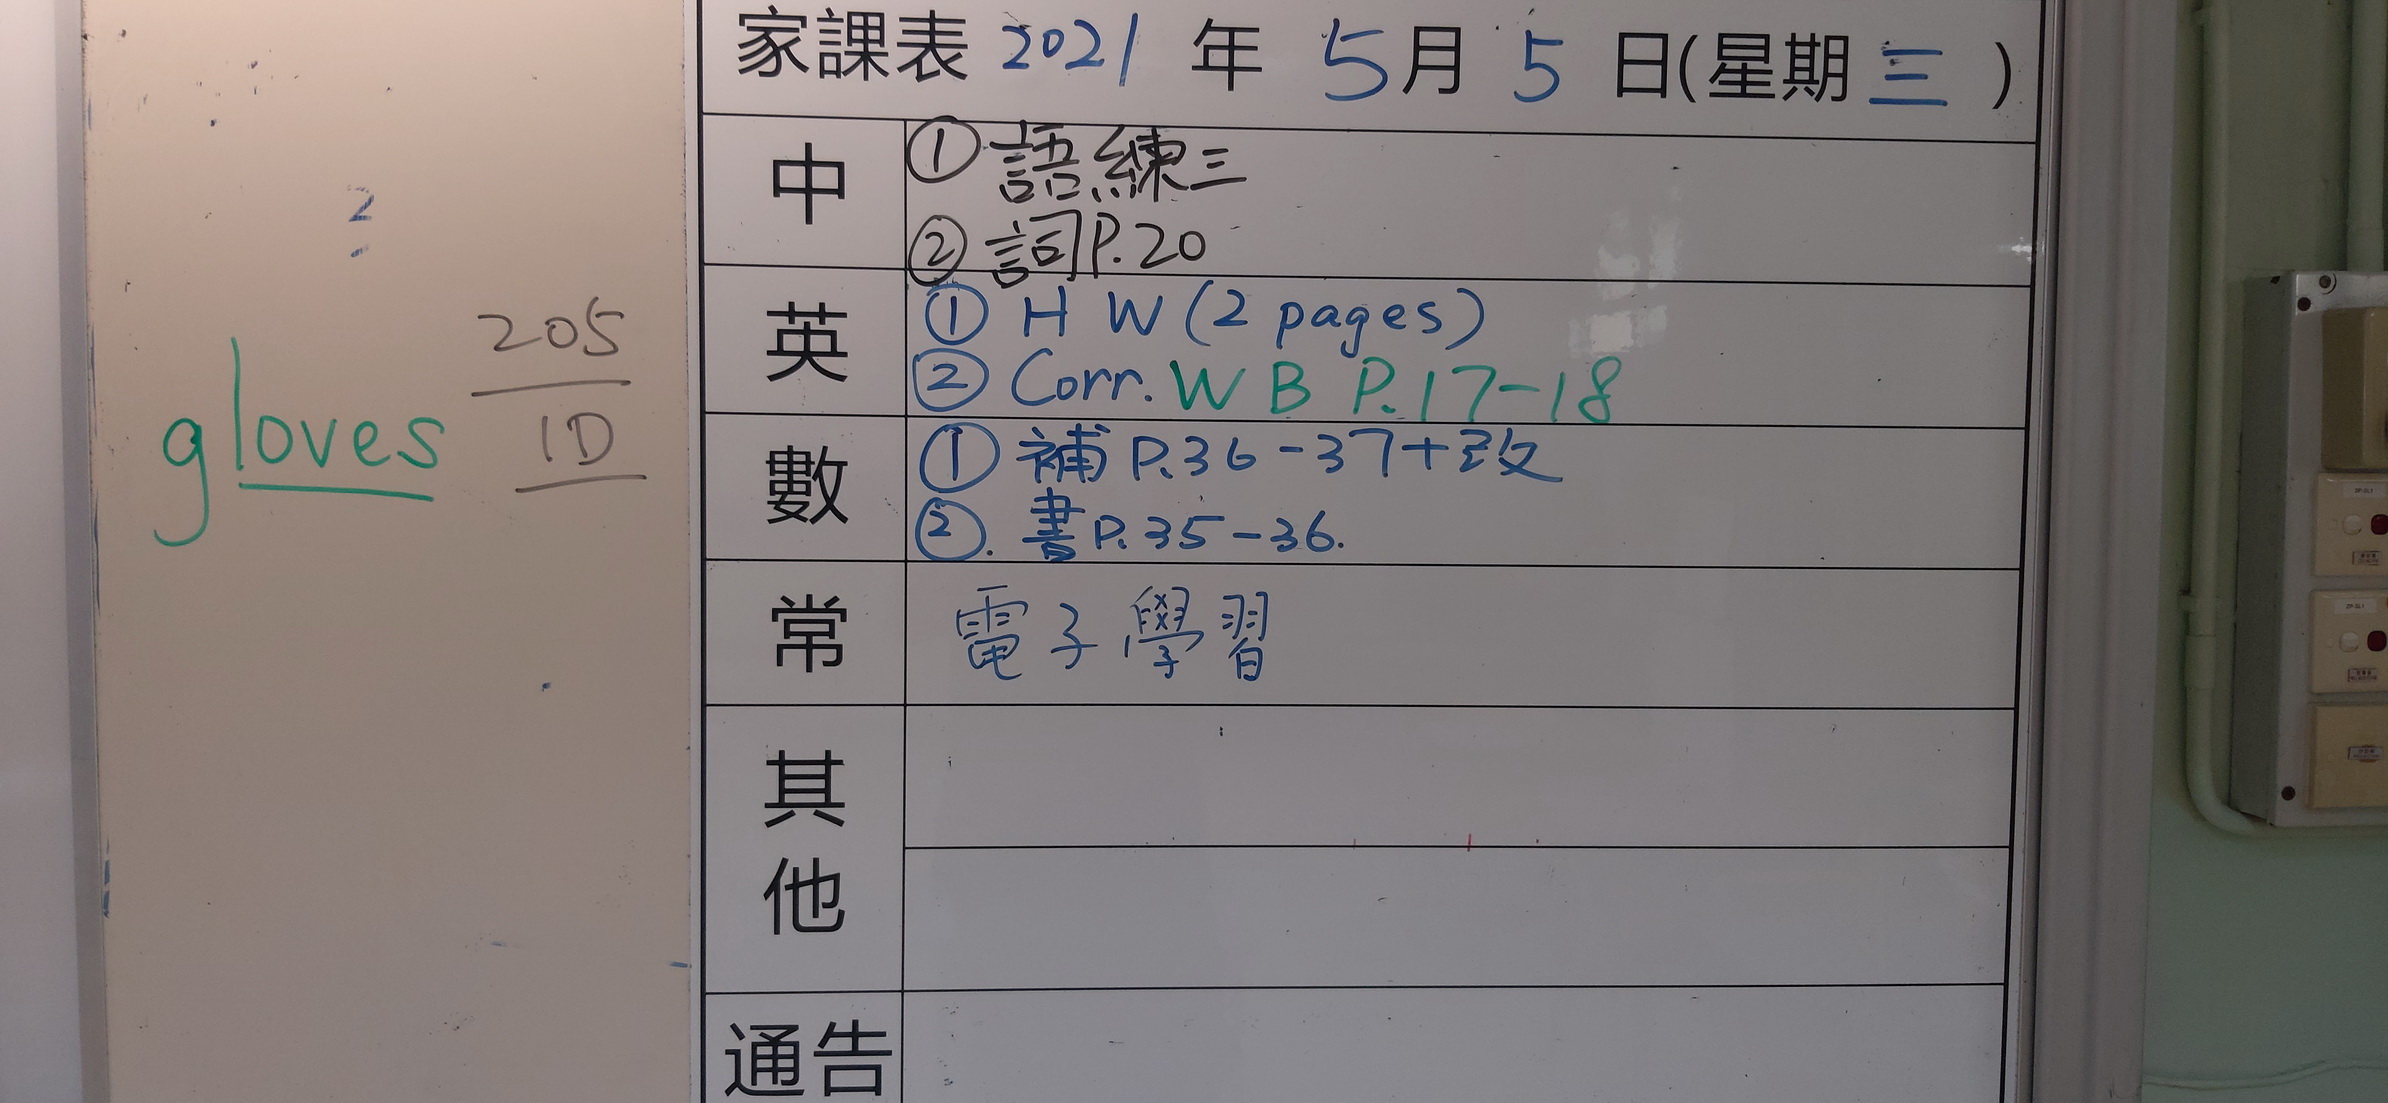 家課表 2021 年 5月 5 日(星期 三 )
中
① 語練三
② 詞P.20
英
① H W (2 pages)
② Corr. W B P.17-18
數
① 補 P.36-37+改
②. 書P.35-36.
常
電子學習
其他
通告
2
205
1D
gloves